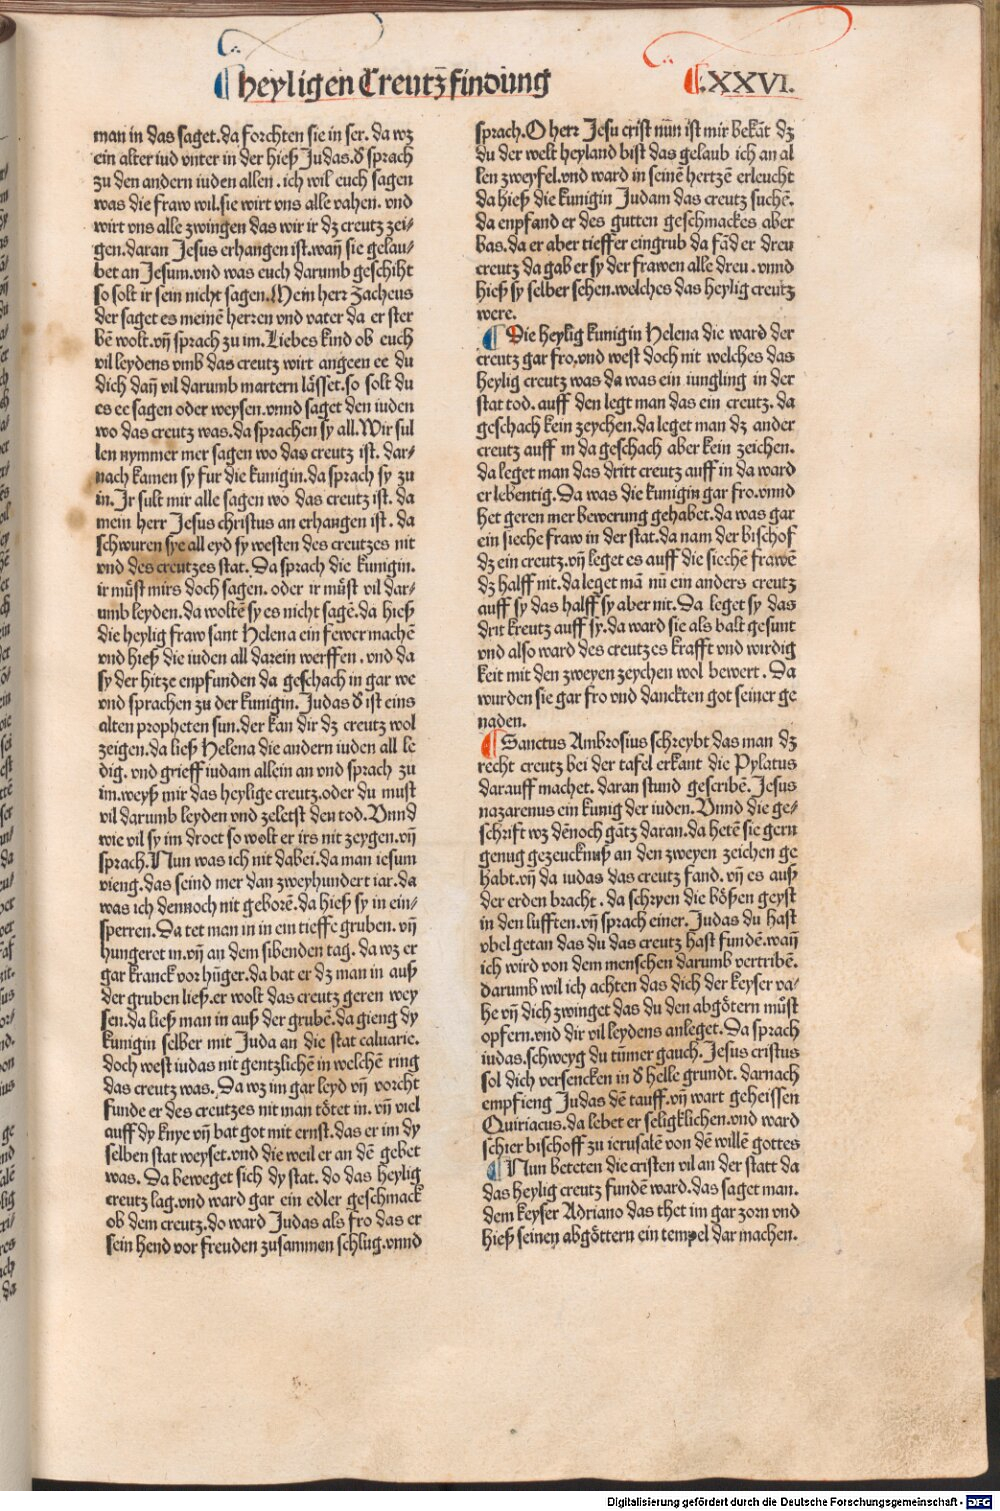 heyligen Creutz̄findung
.XXVI.
man in das saget.da forchten sie in ser. da wz
ein alter iud vnter in der hieß Judas.δ sprach
zu den andern iuden allen . ich wil euch sagen
was die fraw wil.sie wirt vns alle vahen. vnd
wirt vns alle zwingen das wir ir dz creutz zei⸗
gen.daran Jesus erhangen ist.wañ sie gelau⸗
bet an Jesum.vnd was euch darumb geschiht
so solt ir sein nicht sagen.Mein herr Zacheus
der saget es meinē herren vnd vater da er ster
bē wolt.vñ sprach zu im. Liebes kind ob euch
vil leydens vmb das creutz wirt angeen ee du
dich dañ vil darumb martern lässet.so solt du
es ee sagen oder weysen.vnnd saget den iuden
wo das creutz was.da sprachen sy all.Wir sul
len nymmer mer sagen wo das creutz ist. dar⸗
nach kamen sy fur die kunigin.da sprach sy zu
in.Ir sult mir alle sagen wo das creutz ist. da
mein herr Jesus christus an erhangen ist . da
schwuren sye all eyd sy westen des creutzes nit
vnd des creutzes stat. Da sprach die kunigin.
ir můst mirs doch sagen. oder ir můst vil dar⸗
umb leyden.da woltē sy es nicht sagē.da hieß
die heylig fraw sant Helena ein fewer machē
vnd hieß die iuden all darein werffen . vnd da
sy der hitze enpfunden da geschach in gar we
vnd sprachen zu der kunigin. Judas δ ist eins
alten propheten sun.der kan dir dz creutz wol
zeigen.da ließ Helena die andern iuden all le
dig. vnd grieff iudam allein an vnd sprach zu
im.weyß mir das heylige creutz.oder du must
vil darumb leyden vnd zeletst den tod. Vnnd
wie vil sy im droet so wolt er irs nit zeygen.vñ
sprach.Nun was ich nit dabei.da man iesum
vieng.das seind mer dan zweyhundert iar.da
was ich dennoch nit geborē.da hieß sy in ein⸗
sperren. Da tet man in in ein tieffe gruben. vñ
hungeret in.vñ an dem sibenden tag. da wz er
gar kranck vor hūger.da bat er dz man in auß
der gruben ließ.er wolt das creutz geren wey
sen.da ließ man in auß der grubē.da gieng dy
kunigin selber mit Juda an die stat caluarie.
doch west iudas nit gentzlichē in welchē ring
das creutz was. Da wz im gar leyd vñ vorcht
funde er des creutzes nit man tötet in. vñ viel
auff dy knye vñ bat got mit ernst.das er im dy
selben stat weyset.vnd die weil er an dē gebet
was. Da beweget sich dy stat. do das heylig
creutz lag.vnd ward gar ein edler geschmack
ob dem creutz.do ward Judas als fro das er
sein hend vor freuden zusammen schlug.vnnd
sprach.O herr Jesu crist nūn ist mir bekāt dz
du der welt heyland bist das gelaub ich an al
len zweyfel.vnd ward in seinē hertzē erleucht
da hieß die kunigin Judam das creutz suchē.
da enpfand er des gutten geschmackes aber
bas.da er aber tieffer eingrub da fād er dreu
creutz da gab er sy der frawen alle dreu . vnnd
hieß sy selber sehen.welches das heylig creutz
were.
Die heylig kunigin Helena die ward der
creutz gar fro.vnd west doch nit welches das
heylig creutz was da was ein iungling in der
stat tod. auff den legt man das ein creutz. da
geschach kein zeychen.da leget man dz ander
creutz auff in da geschach aber kein zeichen.
da leget man das dritt creutz auff in da ward
er lebentig. Da was die kunigin gar fro.vnnd
het geren mer bewerung gehabet.da was gar
ein sieche fraw in der stat.da nam der bischof
dz ein creutz.vñ leget es auff die siechē frawē
dz halff nit.da leget mā nū ein anders creutz
auff sy das halff sy aber nit. Da leget sy das
drit kreutz auff sy.da ward sie als balt gesunt
vnd also ward des creutzes krafft vnd wirdig
keit mit den zweyen zeychen wol bewert . Da
wurden sie gar fro vnd danckten got seiner ge
naden.
Sanctus Ambrosius schreybt das man dz
recht creutz bei der tafel erkant die Pylatus
darauff machet. daran stund gescribē. Jesus
nazarenus ein kunig der iuden. Vnnd die ge⸗
schrift wz dēnoch gātz daran.da hetē sie gern
genug gezeucknuß an den zweyen zeichen ge
habt.vñ da iudas das creutz fand. vñ es auß
der erden bracht . da schryen die bößen geyst
in den lufften. vñ sprach einer. Judas du hast
vbel getan das du das creutz hast fundē.wañ
ich wird von dem menschen darumb vertribē.
darumb wil ich achten das dich der keyser va⸗
he vñ dich zwinget das du den abgötern můst
opfern.vnd dir vil leydens anleget. Da sprach
iudas.schweyg du tūmer gauch. Jesus cristus
sol dich versencken in δ helle grundt. darnach
empfieng Judas dē tauff. vñ wart geheissen
Quiriacus.da lebet er seligklichen.vnd ward
schier bischoff zu ierusalē von dē willē gottes
Nun beteten die cristen vil an der statt da
das heylig creutz fundē ward.das saget man.
dem keyser Adriano das thet im gar zorn vnd
hieß seinen abgöttern ein tempel dar machen.
Digitalisierung gefördert durch die Deutsche Forschungsgemeinschaft - DFG